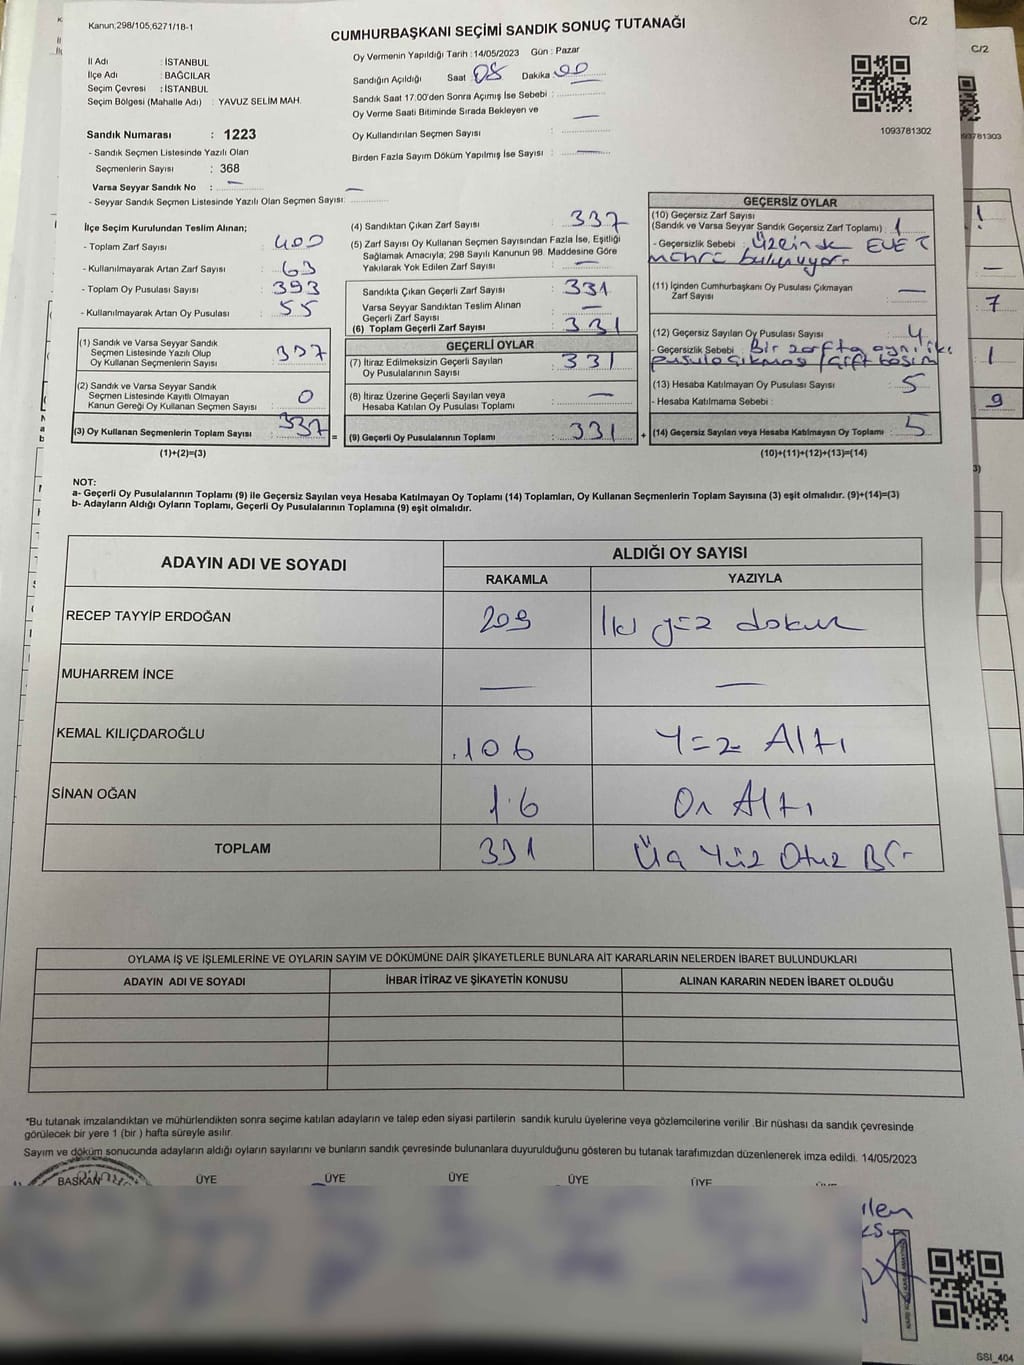 Kanun,298/105,6271/18-1
CUMHURBAŞKANI SEÇİMİ SANDIK SONUÇ TUTANAĞI
C/2
İl Adı : İSTANBUL
İlçe Adı : BAĞCILAR
Seçim Çevresi : İSTANBUL
Seçim Bölgesi (Mahalle Adı) : YAVUZ SELİM MAH.
Sandık Numarası : 1223
- Sandık Seçmen Listesinde Yazılı Olan
Seçmenlerin Sayısı : 368
Varsa Seyyar Sandık No : —
- Seyyar Sandık Seçmen Listesinde Yazılı Olan Seçmen Sayısı: —
Oy Vermenin Yapıldığı Tarih : 14/05/2023 Gün : Pazar
Sandığın Açıldığı Saat 08 Dakika 00
Sandık Saat 17:00'den Sonra Açımış İse Sebebi :
Oy Verme Saati Bitiminde Sırada Bekleyen ve
Oy Kullandırılan Seçmen Sayısı : —
Birden Fazla Sayım Döküm Yapılmış İse Sayısı : —
1093781302
İlçe Seçim Kurulundan Teslim Alınan;
- Toplam Zarf Sayısı : 400
- Kullanılmayarak Artan Zarf Sayısı : 63
- Toplam Oy Pusulası Sayısı : 393
- Kullanılmayarak Artan Oy Pusulası : 55
(1) Sandık ve Varsa Seyyar Sandık
Seçmen Listesinde Yazılı Olup
Oy Kullanan Seçmenlerin Sayısı : 337
(2) Sandık ve Varsa Seyyar Sandık
Seçmen Listesinde Kayıtlı Olmayan
Kanun Gereği Oy Kullanan Seçmen Sayısı : 0
(3) Oy Kullanan Seçmenlerin Toplam Sayısı : 337 =
(1)+(2)=(3)
(4) Sandıktan Çıkan Zarf Sayısı : 337
(5) Zarf Sayısı Oy Kullanan Seçmen Sayısından Fazla İse, Eşitliği
Sağlamak Amacıyla; 298 Sayılı Kanunun 98. Maddesine Göre
Yakılarak Yok Edilen Zarf Sayısı : —
Sandıkta Çıkan Geçerli Zarf Sayısı : 331
Varsa Seyyar Sandıktan Teslim Alınan
Geçerli Zarf Sayısı : —
(6) Toplam Geçerli Zarf Sayısı : 331
GEÇERLİ OYLAR
(7) İtiraz Edilmeksizin Geçerli Sayılan
Oy Pusulalarının Sayısı : 331
(8) İtiraz Üzerine Geçerli Sayılan veya
Hesaba Katılan Oy Pusulası Toplamı : —
(9) Geçerli Oy Pusulalarının Toplamı : 331 +
GEÇERSİZ OYLAR
(10) Geçersiz Zarf Sayısı
(Sandık ve Varsa Seyyar Sandık Geçersiz Zarf Toplamı) : 1
- Geçersizlik Sebebi : Üzerinde EVET
mührü bulunuyor-
(11) İçinden Cumhurbaşkanı Oy Pusulası Çıkmayan
Zarf Sayısı : —
(12) Geçersiz Sayılan Oy Pusulası Sayısı : 4
- Geçersizlik Sebebi : Bir zarfta aynı iki
pusula çıkması / çift basım
(13) Hesaba Katılmayan Oy Pusulası Sayısı : 5
- Hesaba Katılmama Sebebi :
(14) Geçersiz Sayılan veya Hesaba Katılmayan Oy Toplamı : 5
(10)+(11)+(12)+(13)=(14)
NOT:
a- Geçerli Oy Pusulalarının Toplamı (9) ile Geçersiz Sayılan veya Hesaba Katılmayan Oy Toplamı (14) Toplamları, Oy Kullanan Seçmenlerin Toplam Sayısına (3) eşit olmalıdır. (9)+(14)=(3)
b- Adayların Aldığı Oyların Toplamı, Geçerli Oy Pusulalarının Toplamına (9) eşit olmalıdır.
ADAYIN ADI VE SOYADI
ALDIĞI OY SAYISI
RAKAMLA YAZIYLA
RECEP TAYYİP ERDOĞAN 209 İki yüz dokuz
MUHARREM İNCE — —
KEMAL KILIÇDAROĞLU 106 Yüz Altı
SİNAN OĞAN 16 On Altı
TOPLAM 331 Üç Yüz Otuz Bir
OYLAMA İŞ VE İŞLEMLERİNE VE OYLARIN SAYIM VE DÖKÜMÜNE DAİR ŞİKAYETLERLE BUNLARA AİT KARARLARIN NELERDEN İBARET BULUNDUKLARI
ADAYIN ADI VE SOYADI İHBAR İTİRAZ VE ŞİKAYETİN KONUSU ALINAN KARARIN NEDEN İBARET OLDUĞU
*Bu tutanak imzalandıktan ve mühürlendikten sonra seçime katılan adayların ve talep eden siyasi partilerin sandık kurulu üyelerine veya gözlemcilerine verilir .Bir nüshası da sandık çevresinde
görülecek bir yere 1 (bir ) hafta süreyle asılır.
Sayım ve döküm sonucunda adayların aldığı oyların sayılarını ve bunların sandık çevresinde bulunanlara duyurulduğunu gösteren bu tutanak tarafımızdan düzenlenerek imza edildi. 14/05/2023
BAŞKAN ÜYE ÜYE ÜYE ÜYE ÜYE
SSI_404
C/2
1
—
7
1
9